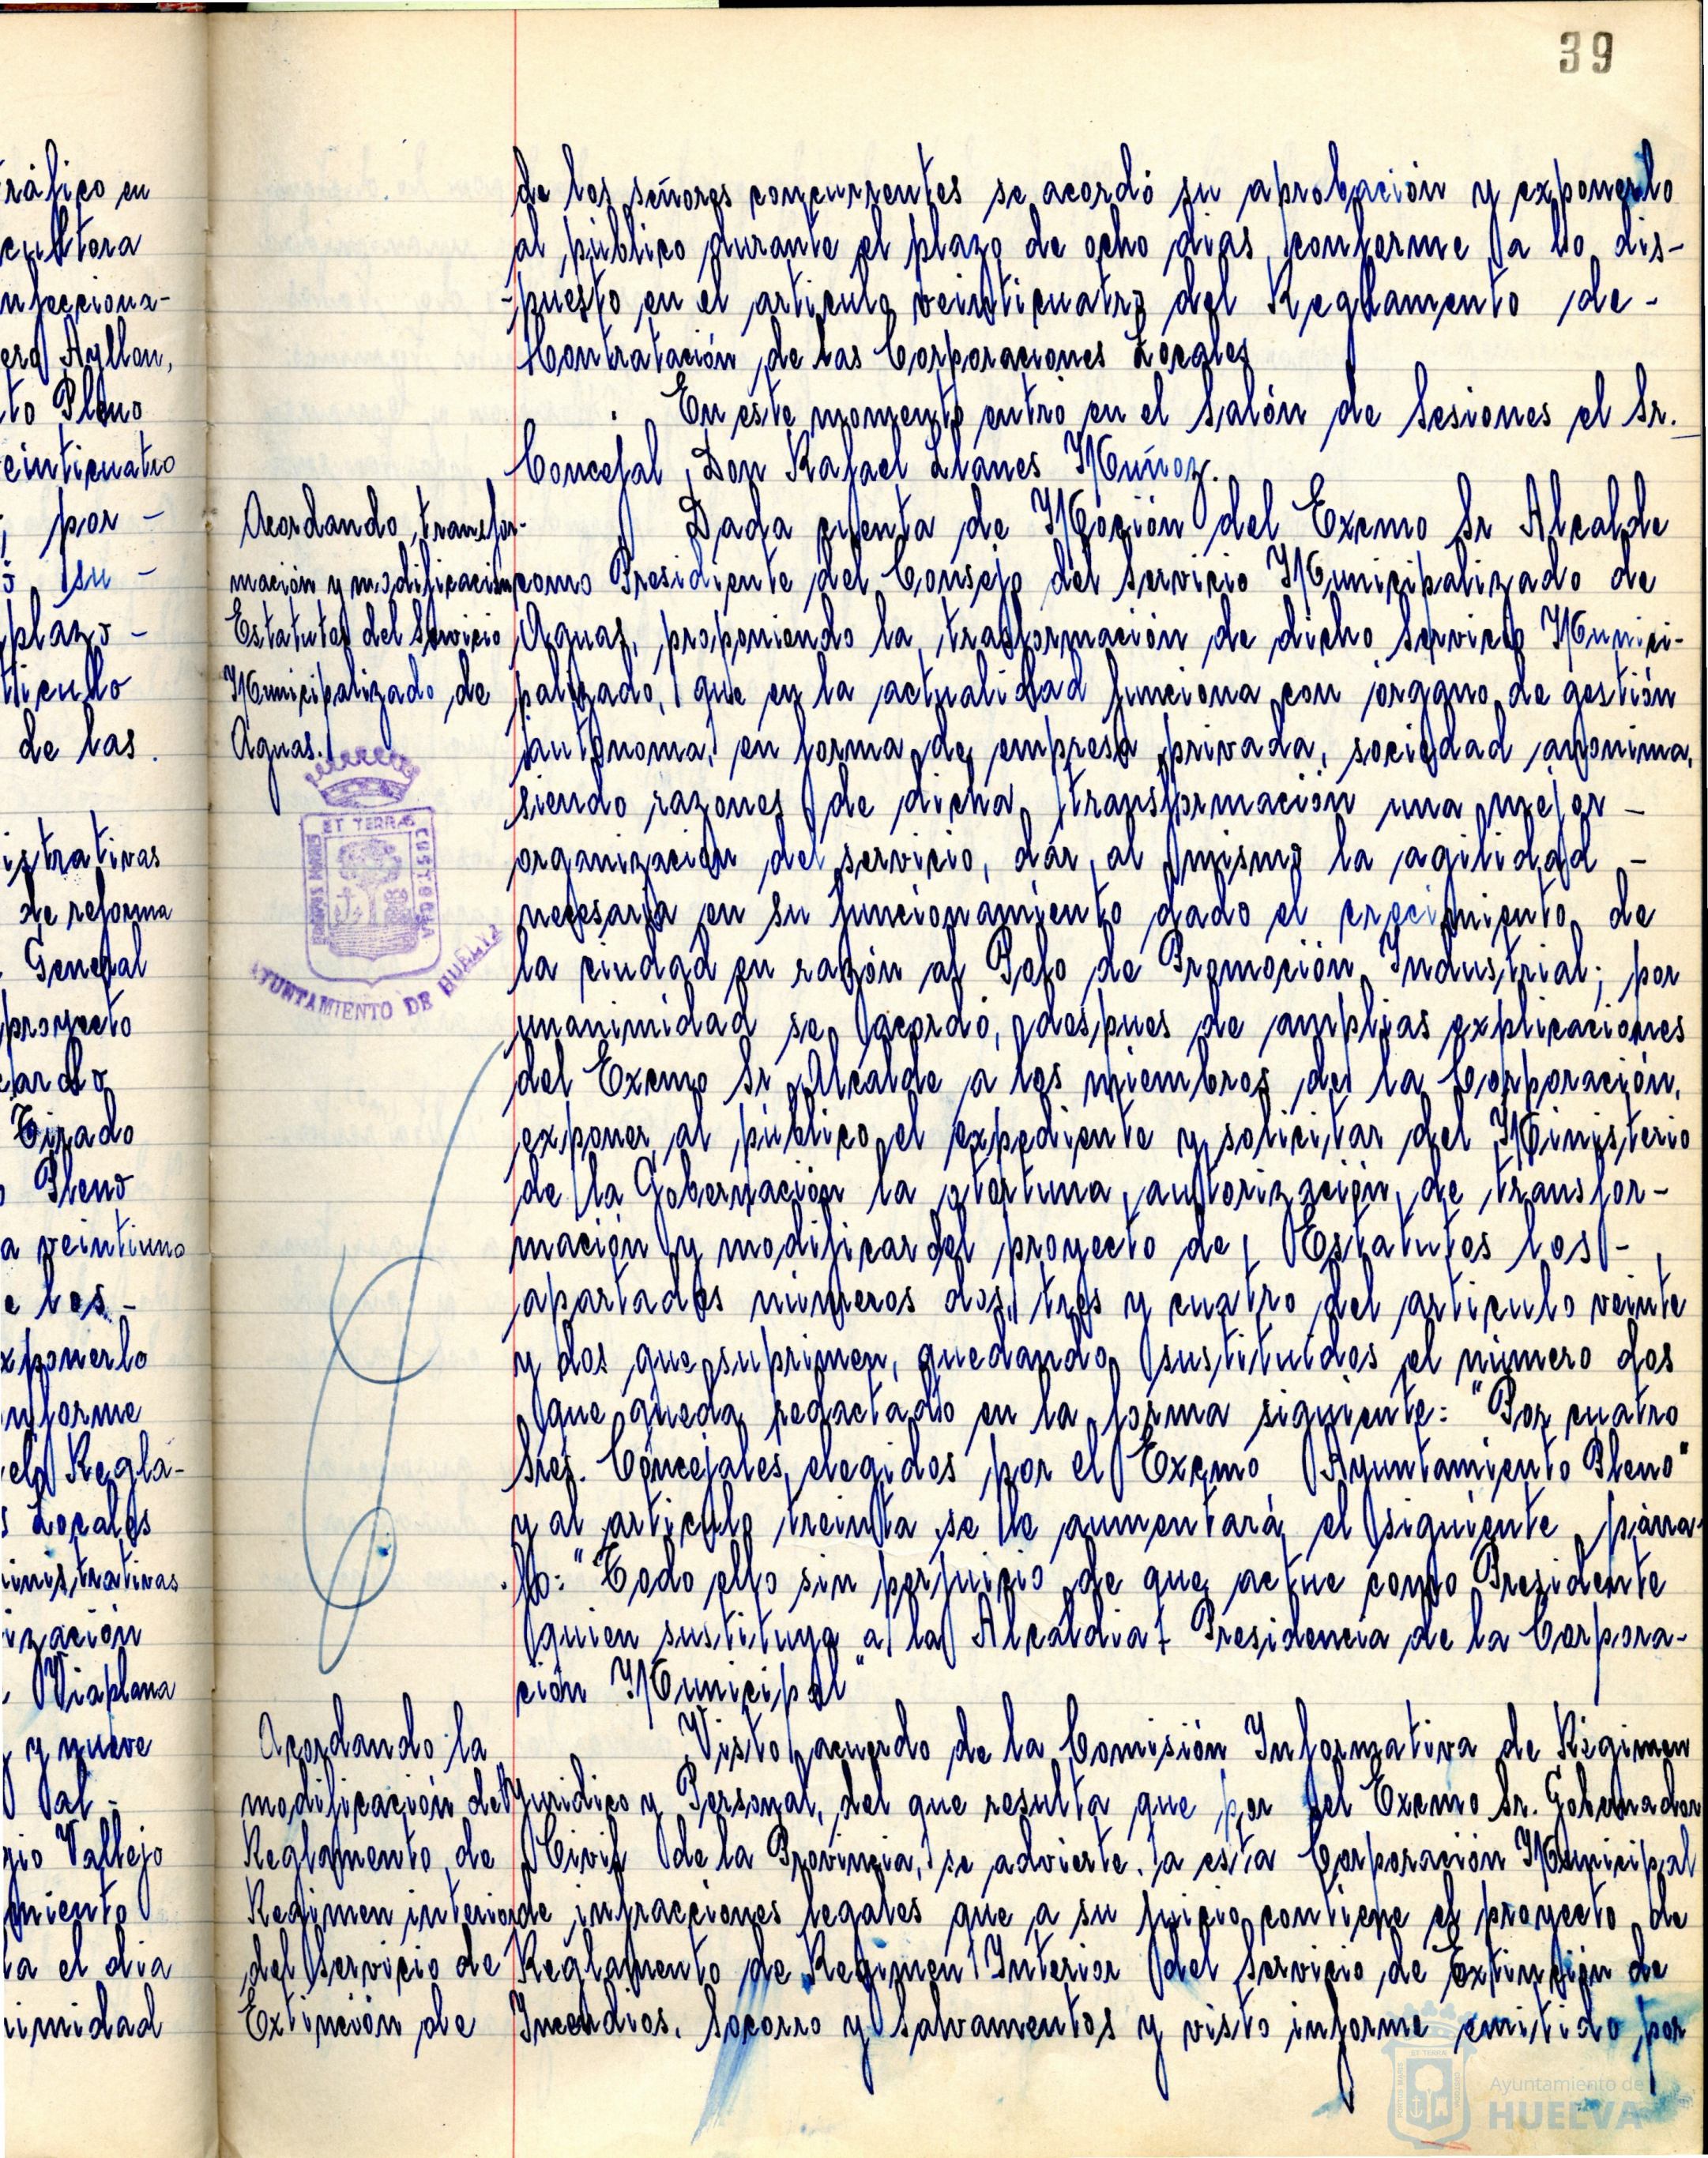 39
de los señores concurrentes se acordó su aprobación y exponerlo
al público durante el plazo de ocho dias, conforme a lo dis-
-puesto en el articulo veinticuatro del Reglamento de-
Contratación de las Corporaciones Locales
En este momento entró en el salón de Sesiones el Sr.
Concejal, Don Rafael Llanes Muñoz.
Acordando transfor-
mación y modificación
Estatutos del Servicio
Municipalizado de
Aguas.
Dada cuenta de Moción del Excmo Sr Alcalde
como Presidente del Consejo del Servicio Municipalizado de
Aguas, proponiendo la trasformación de dicho servicio Munici-
palizado, que en la actualidad funciona con organo de gestión
autonoma, en forma de empresa privada, sociedad anonima,
siendo razones de dicha transformación una mejor -
organización del servicio, dar al mismo la agilidad -
necesaria en su funcionamiento dado el crecimiento de
la ciudad en razón al Polo de Promoción Industrial; por
unanimidad se acordó, despues de amplias explicaciones
del Excmo Sr Alcalde a los miembros de la Corporación,
exponer al público el expediente y solicitar del Ministerio
de la Gobernación la oportuna autorización de transfor-
mación y modificar del proyecto de Estatutos los -
apartados números dos, tres y cuatro del articulo veinte
y dos que suprimen, quedando sustituidos el número dos
que queda redactado en la forma siguiente: "Por cuatro
Sres. Concejales, elegidos por el Excmo Ayuntamiento Pleno"
y al articulo treinta se le aumentará el siguiente párra-
fo: "Todo ello sin perjuicio de que actue como Presidente
quien sustituya a la Alcaldia Presidencia de la Corpora-
ción Municipal"
ET TERRAE
PORTUS MARIS
CUSTODIA
AYUNTAMIENTO DE HUELVA
Acordando la
modificación del
Reglamento de
Regimen interior
del Servicio de
Extinción de
Visto acuerdo de la Comisión Informativa de Régimen
Juridico y Personal, del que resulta que por el Excmo Sr. Gobernador
Civil de la Provincia, se advierte a esta Corporación Municipal
de infracciones legales que a su juicio contiene el proyecto de
Reglamento de Regimen Interior del Servicio de Extinción de
Incendios, Socorro y Salvamentos y visto informe emitido por
ráfico en
cultera
nfecciona-
Ayllon,
to Pleno
einticuatro
por -
su -
plazo -
ticulo
de las.
istrativas
de reforma
General
proyecto
Tirado
Pleno
a veintiuno
e los -
xponerlo
nforme
Regla-
s Locales
inistrativas
ización
Viaplana
y nueve
al -
gio Vallejo
miento
la el dia
nimidad
Ayuntamiento de
HUELVA